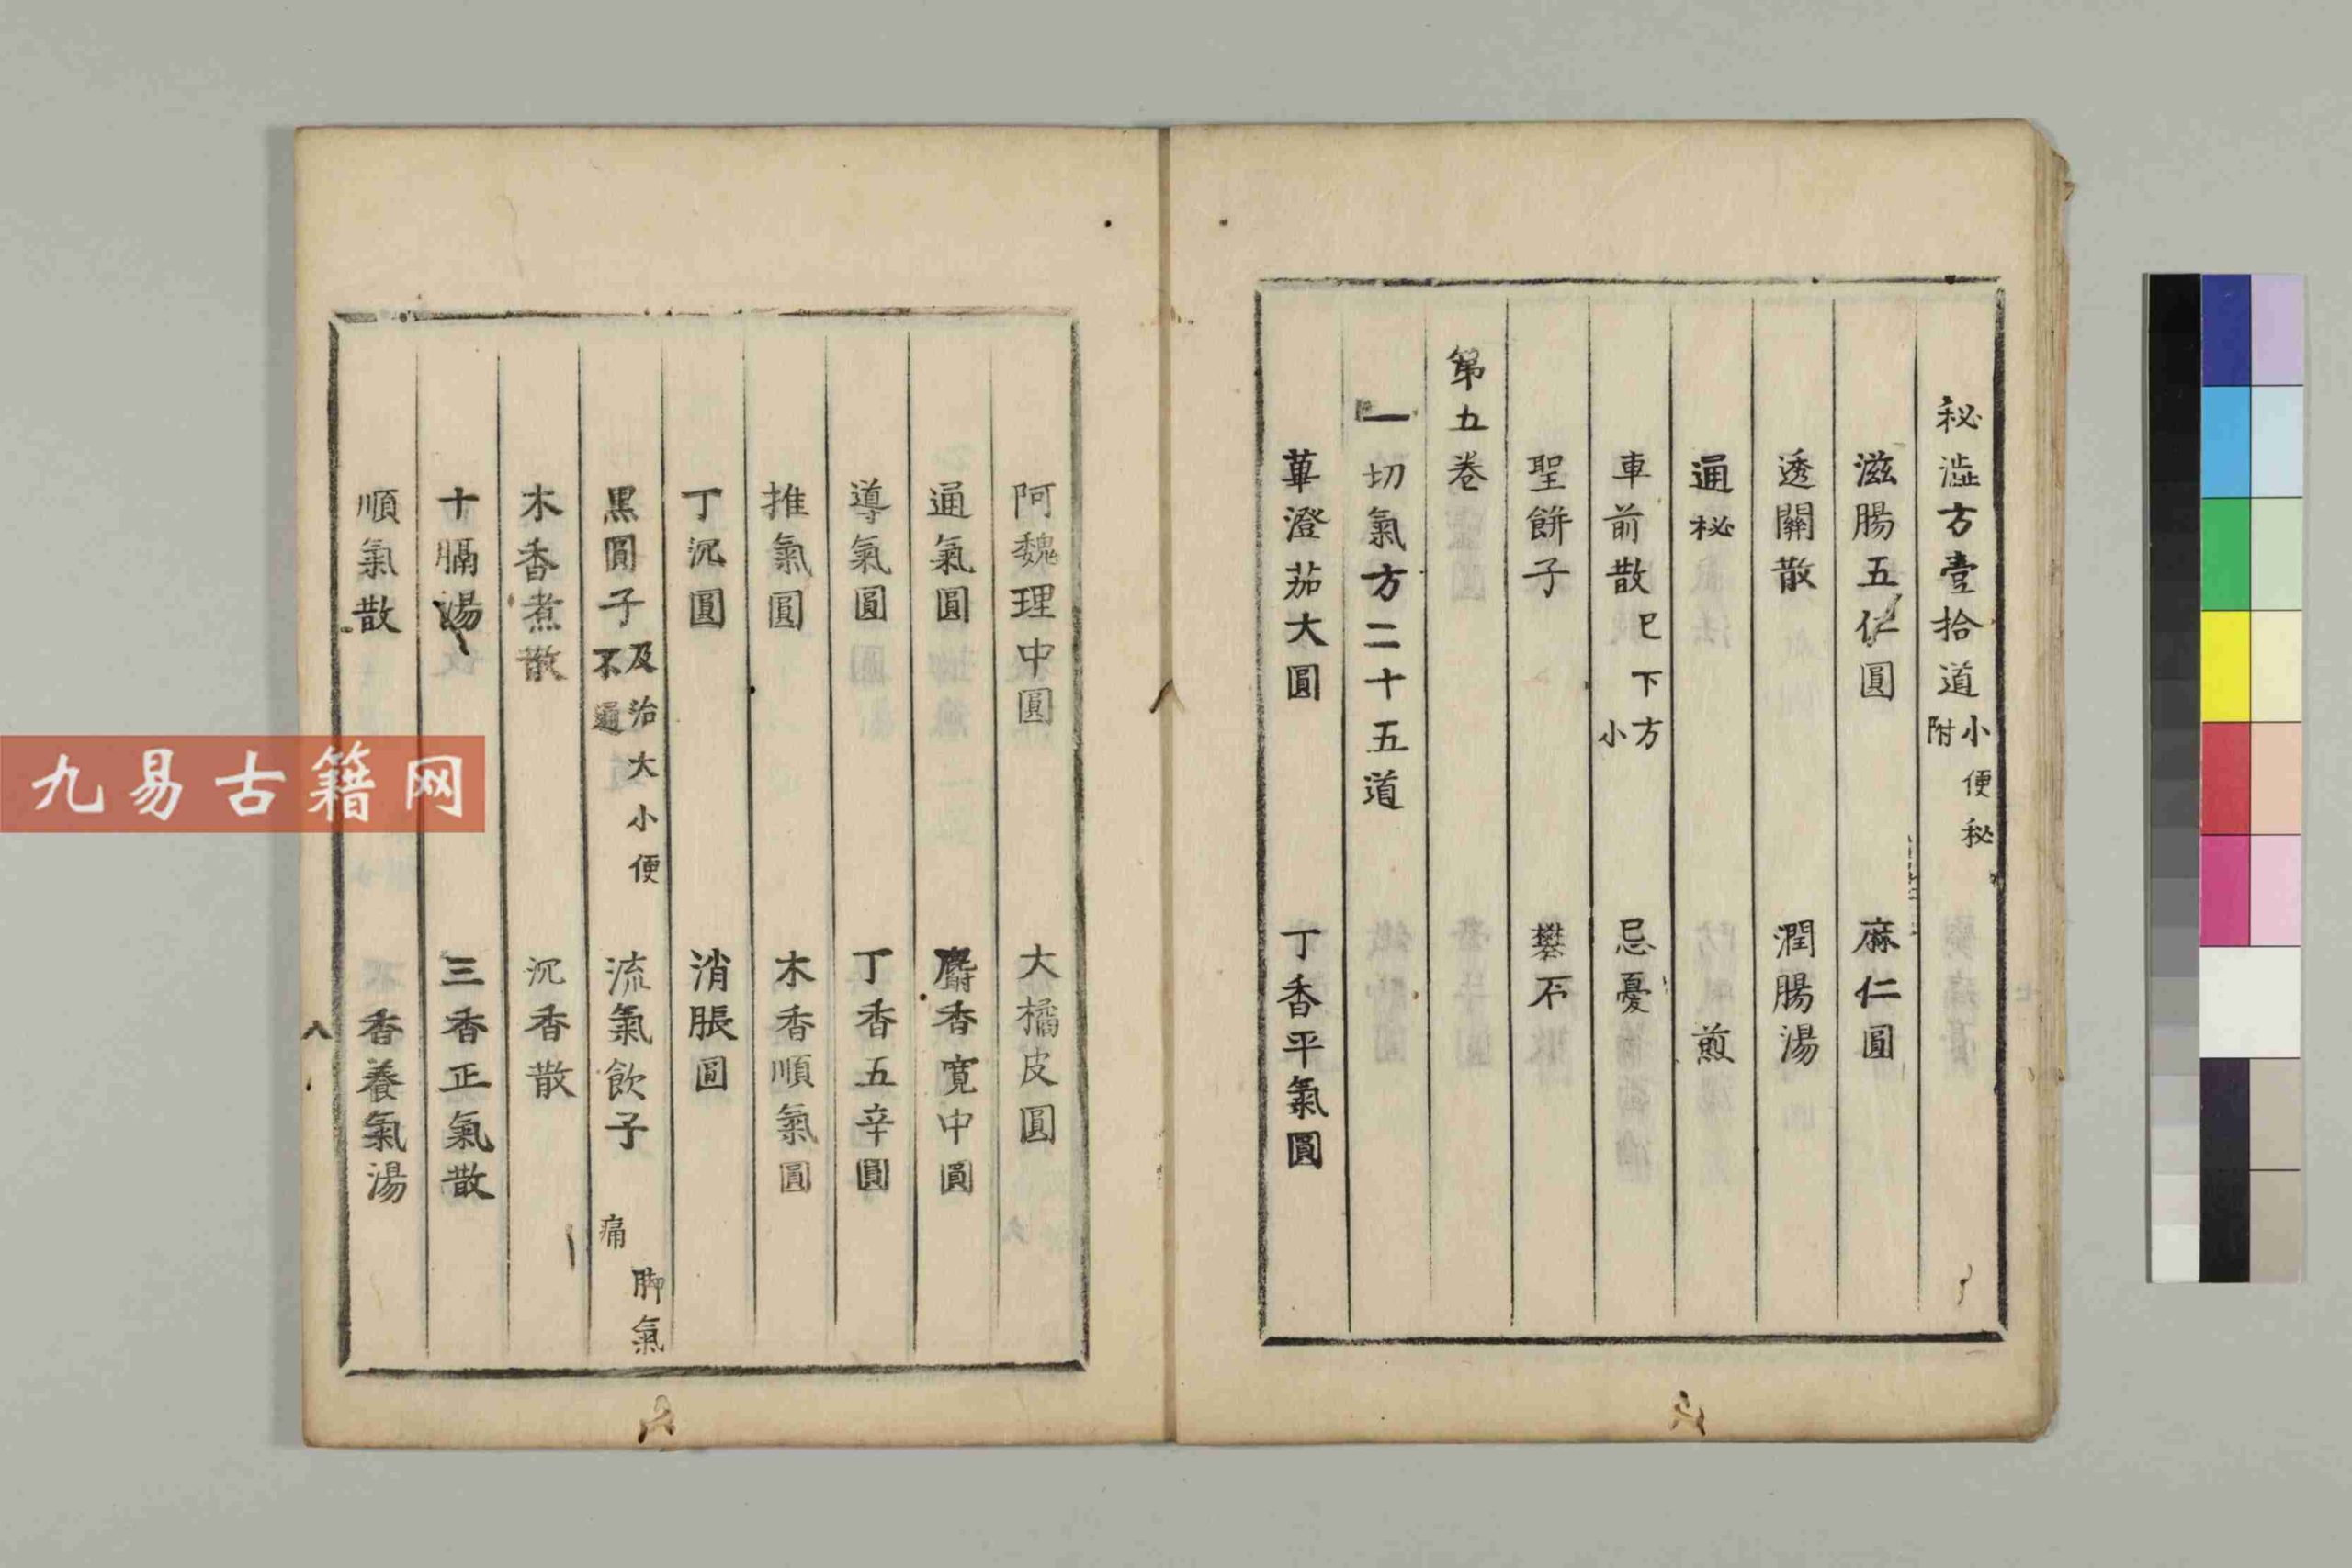 秘澁方壹拾道小便秘附
滋腸五仁圓 麻仁圓
透關散 潤腸湯
通秘 煎
車前散巳下方小 忌憂
聖餅子 礬石
第五卷
一切氣方二十五道
蓽澄茄大圓 丁香平氣圓
阿魏理中圓 大橘皮圓
通氣圓 麝香寬中圓
導氣圓 丁香五辛圓
推氣圓 木香順氣圓
丁沉圓 消脹圓
黑圓子及治大小便不通 流氣飲子脚氣痛
木香煮散 沉香散
十膈湯 三香正氣散
順氣散 香養氣湯
八
九易古籍网